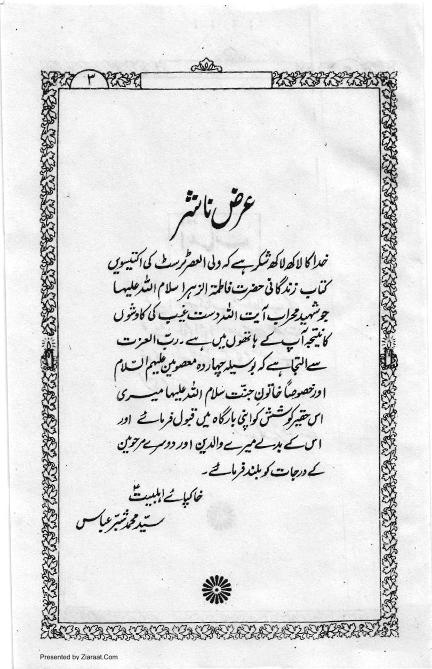 ۳
عرض ناشر
خدا کا لاکھ لاکھ شکر ہے کہ ولی العصر ٹرسٹ کی اکتیسویں
کتاب زندگانی حضرت فاطمۃ الزہرا سلام اللہ علیہا
جو شہید محراب آیت اللہ دست غیب کی کاوشوں
کا نتیجہ آپ کے ہاتھوں میں ہے۔ رب العزت
سے التجا ہے کہ بوسیلہ چہاردہ معصومین علیہم السّلام
اور خصوصاً خاتونِ جنّت سلام اللہ علیہا میری
اس حقیر کوشش کو اپنی بارگاہ میں قبول فرمائے اور
اس کے بدلے میرے والدین اور دوسرے مرحومین
کے درجات کو بلند فرمائے۔
خاکپائے اہلبیتؑ
سیّد محمد شبّر عباس
Presented by Ziaraat.Com